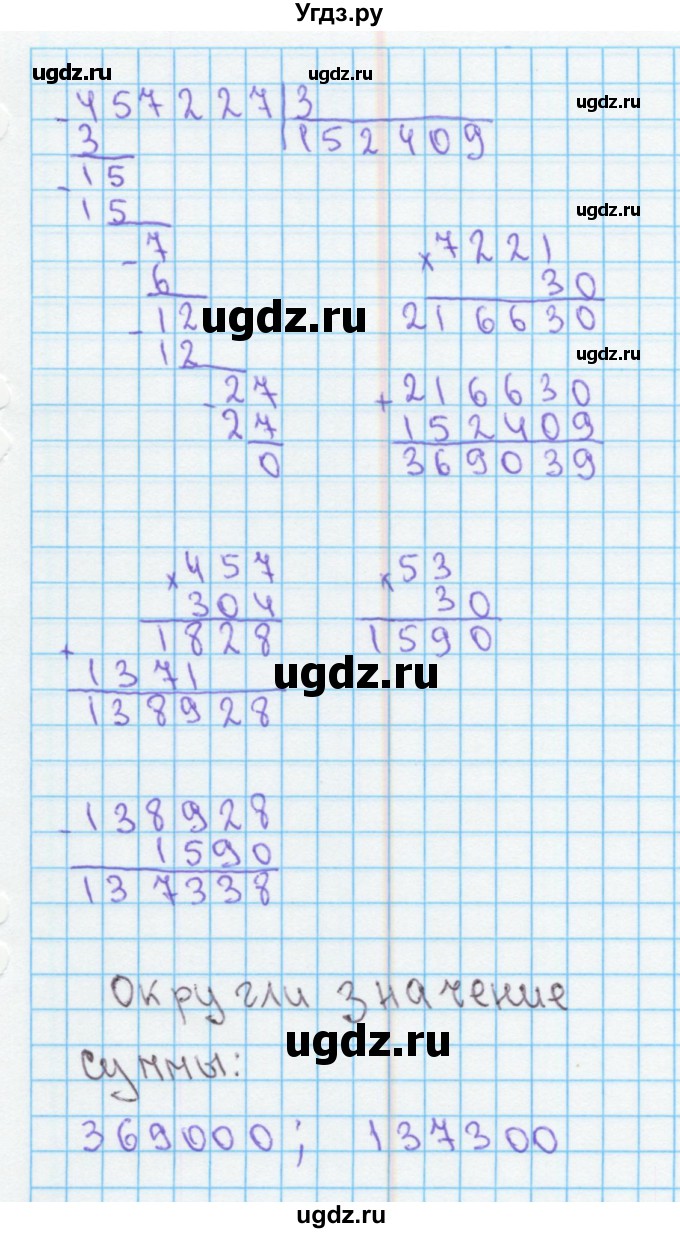 Угдз.ру
ugdz.ru ugdz.ru ugdz.ru
- 457227 | 3
3 152409
- 15
15
ugdz.ru
- 7
6
- 12
12
- 27
27
0
ugdz.ru
× 7221
30
216630
ugdz.ru
+ 216630
152409
369039
× 457
304
+ 1828
1371
138928
× 53
30
1590
ugdz.ru
- 138928
1590
137338
Округли значение
ugdz.ru
суммы:
369000; 137300
ugdz.ru